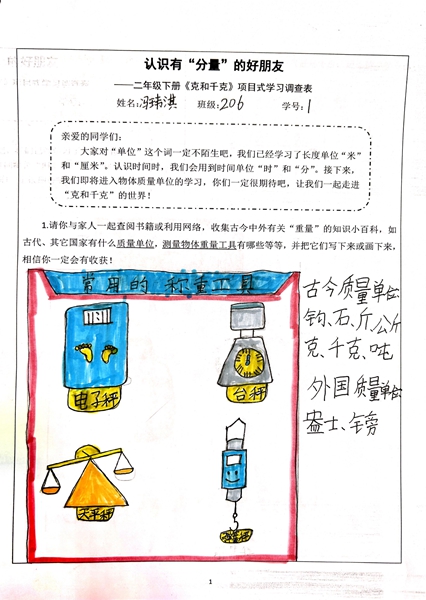 认识有“分量”的好朋友
——二年级下册《克和千克》项目式学习调查表
姓名: 班级:206 学号:1
亲爱的同学们：
大家对“单位”这个词一定不陌生吧，我们已经学习了长度单位“米”
和“厘米”。认识时间时，我们会用到时间单位“时”和“分”。接下来，
我们即将进入物体质量单位的学习，你们一定很期待吧，让我们一起走进
“克和千克”的世界！
1.请你与家人一起查阅书籍或利用网络，收集古今中外有关“重量”的知识小百科，如
古代、其它国家有什么质量单位，测量物体重量工具有哪些等等，并把它们写下来或画下来，
相信你一定会有收获！
常用的称重工具
电子秤
台秤
天平秤
古今质量单位
钧、石、斤、公斤
克、千克、吨
外国质量单位
盎士、镑
1